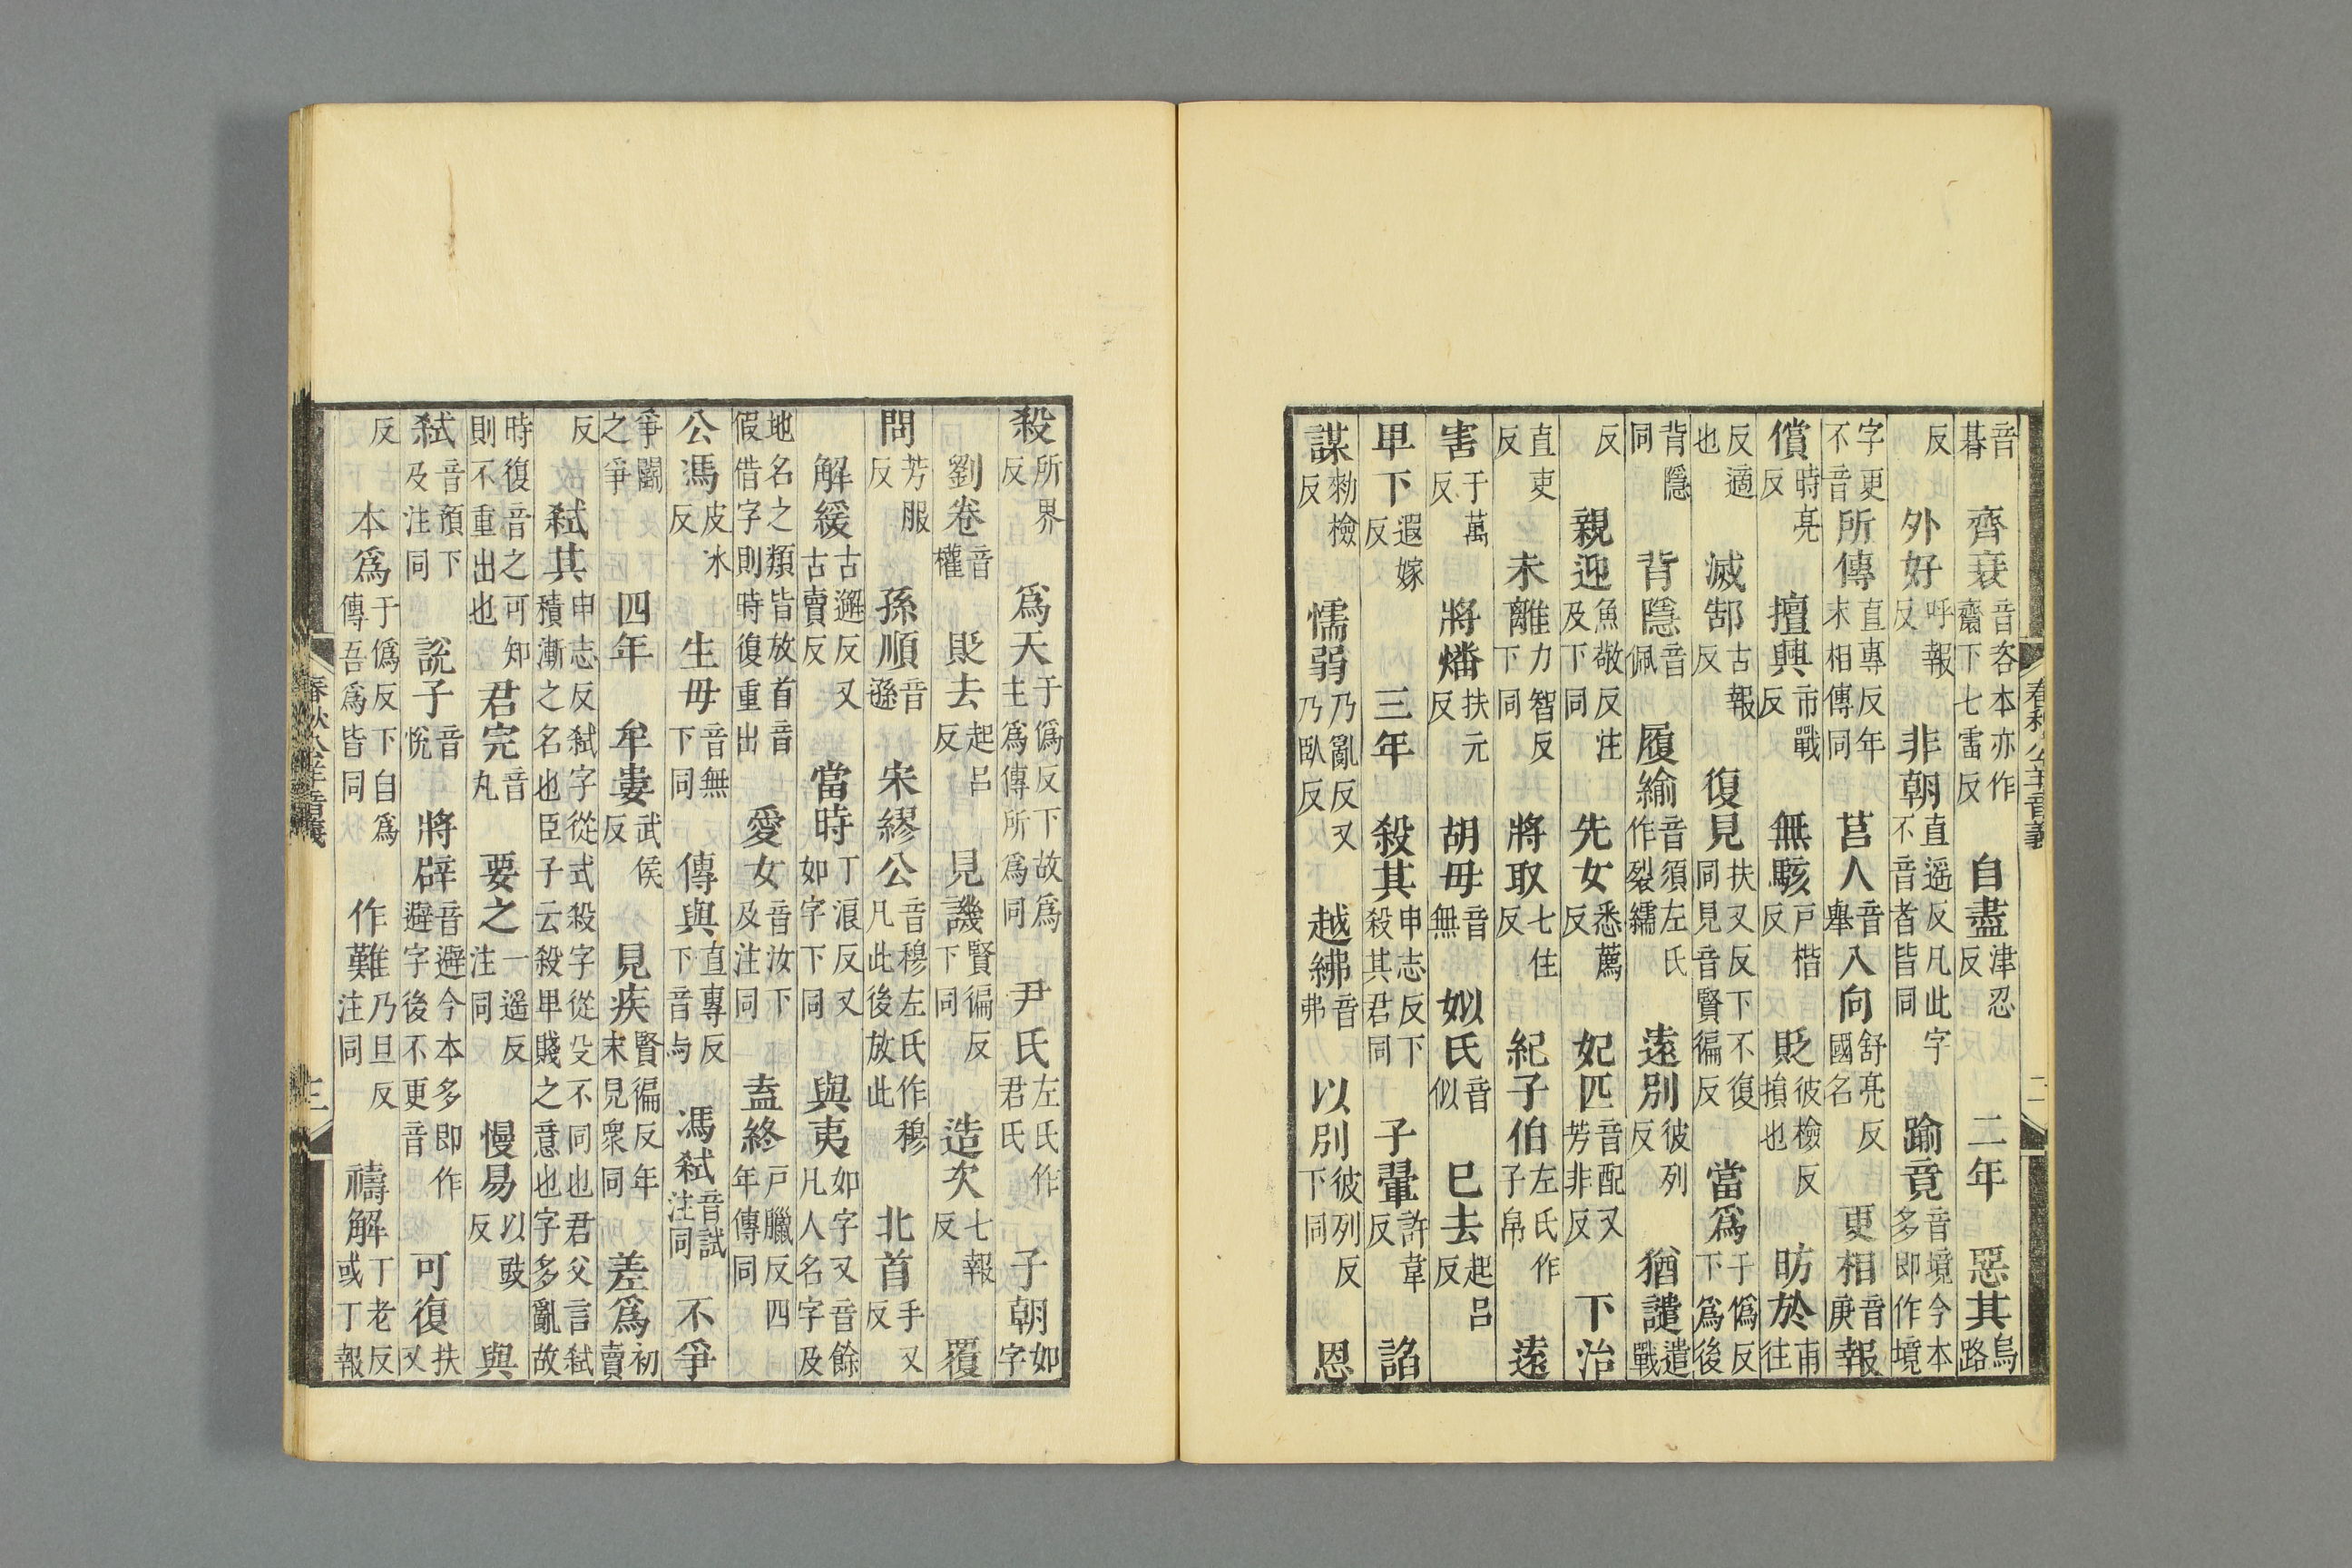 春秋公羊音義 二
音碁齊衰音咨本亦作齋下七雷反自盡津忍反二年惡其烏路
反外好呼報反非朝直遥反凡此字不音者皆同踰竟音境今本多即作境
字更不音所傳直專反年末相傳同莒人音舉入向舒亮反國名更相音庚報
償時亮反擅興市戰反無駭户楷反貶彼檢反損也昉於甫往
反適也滅郜古報反復見扶又反下不復同見音賢徧反當爲于僞反下爲後
背隱同背隱音佩履緰音須左氏作裂繻遠別彼列反猶譴遣戰
反親迎魚敬反注及下同先女悉薦反妃匹音配又芳非反下治
直吏反未離力智反下同將取七住反紀子伯左氏作子帛遠
害于萬反將燔扶元反胡毋音無姒氏音似巳去起吕反
早下遐嫁反三年殺其申志反下殺其君同子翬許韋反諂
謀勑檢反懦弱乃亂反又乃臥反越紼音弗以別彼列反下同恩
殺所界反爲天于僞反下故爲主爲傳所爲同尹氏左氏作君氏子朝如字
劉卷音權貶去起吕反見譏賢徧反下同造次七報反覆
問芳服反孫順音遜宋繆公音穆左氏作穆凡此後放此北首手又反
解緩古邂反又古賣反當時丁浪反又如字下同與夷如字又音餘凡人名字及
地名之類皆放首音假借字則時復重出愛女音汝下及注同盍終户臘反四年傳同
公馮皮冰反生毋音無下同傳與直專反下音与馮弒音試注同不爭
爭鬭之爭四年牟婁武侯反見疾賢徧反年末見衆同差爲初賣
反弒其申志反弒字從式殺字從殳不同也君父言弒積漸之名也臣子云殺卑賤之意也字多亂故
時復音之可知則不重出也君完音丸要之一遥反注同慢易以豉反與
弒音預下及注同說子音悅將辟音避今本多即作避字後不更音可復扶又
反本爲于僞反下自爲傳吾爲皆同作難乃旦反注同禱解丁老反或丁報
春秋公羊音義 三